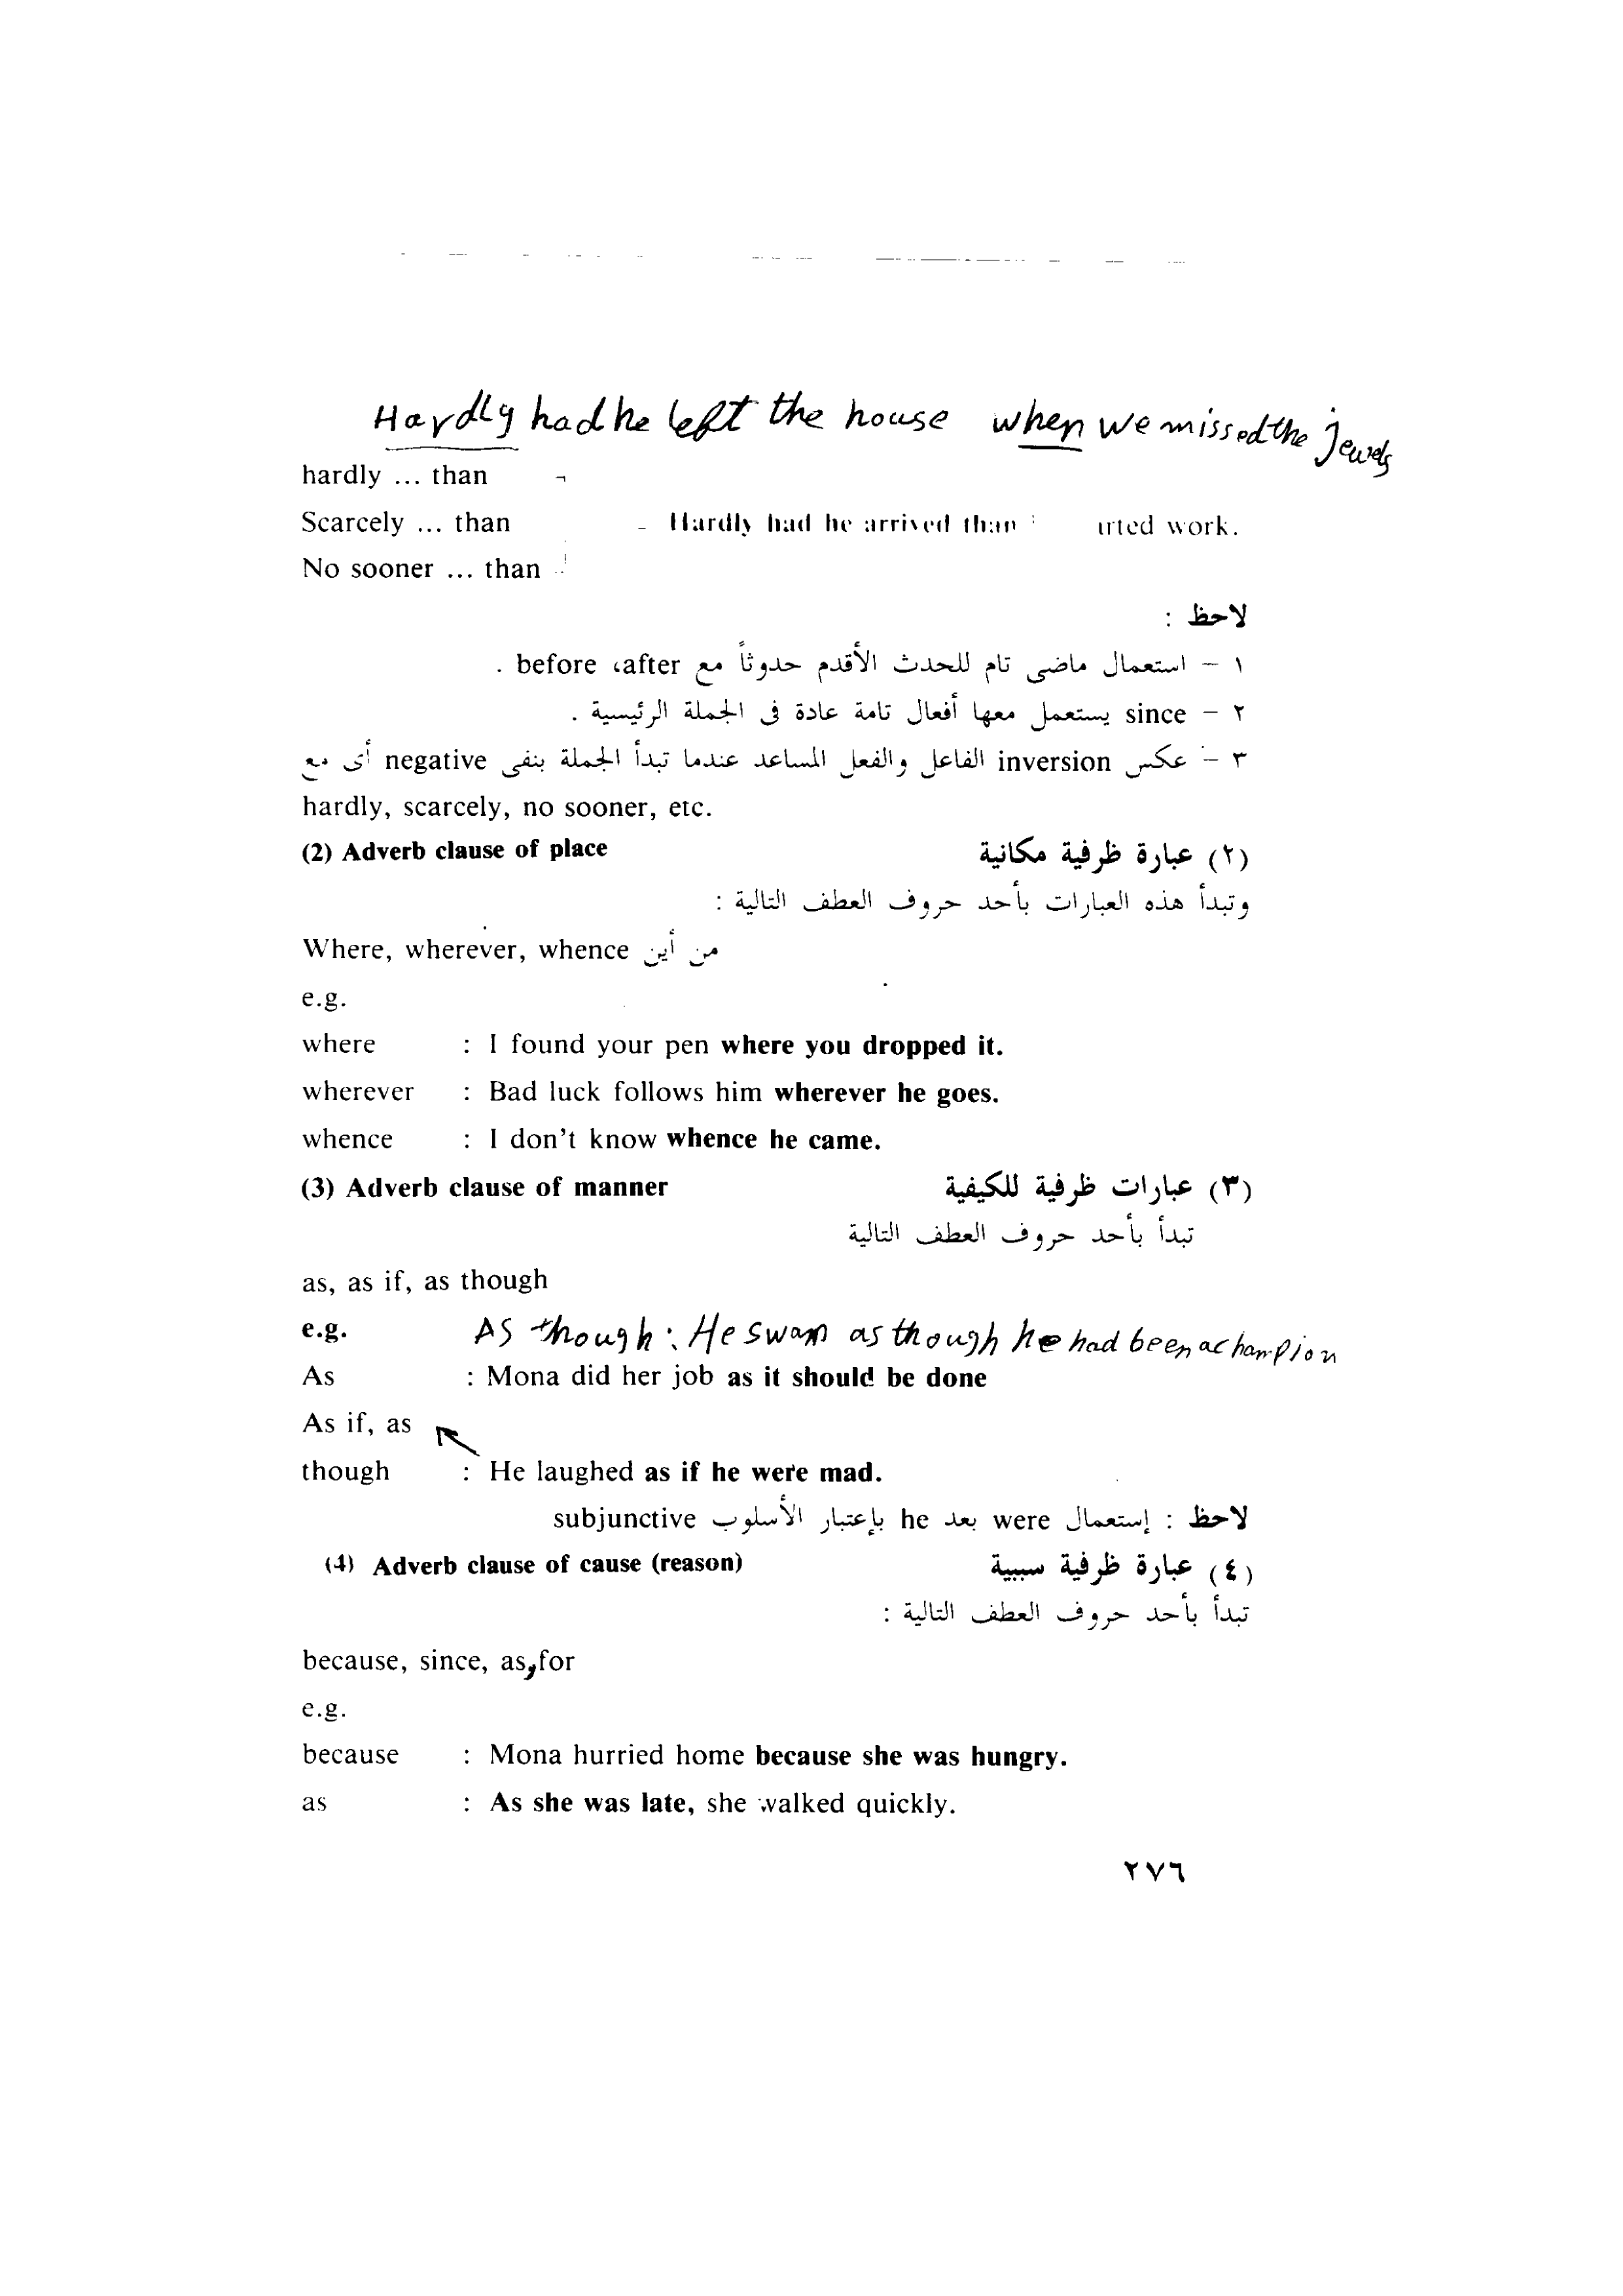 Hardly had he left the house when we missed the jewels
hardly ... than
Scarcely ... than - Hardly had he arrived than work.
No sooner ... than
لاحظ :
١ – استعمال ماضى تام للحدث الأقدم حدوثاً مع before ،after .
٢ – since يستعمل معها أفعال تامة عادة فى الجملة الرئيسية .
٣ – عكس inversion الفاعل والفعل المساعد عندما تبدأ الجملة بنفى negative أى مع
hardly, scarcely, no sooner, etc.
(2) Adverb clause of place (٢) عبارة ظرفية مكانية
وتبدأ هذه العبارات بأحد حروف العطف التالية :
Where, wherever, whence من أين
e.g.
where : I found your pen where you dropped it.
wherever : Bad luck follows him wherever he goes.
whence : I don't know whence he came.
(3) Adverb clause of manner (٣) عبارات ظرفية للكيفية
تبدأ بأحد حروف العطف التالية
as, as if, as though
e.g. AS though : He swam as though he had been a champion
As : Mona did her job as it should be done
As if, as
though : He laughed as if he were mad.
لاحظ : إستعمال were بعد he بإعتبار الأسلوب subjunctive
(4) Adverb clause of cause (reason) (٤) عبارة ظرفية سببية
تبدأ بأحد حروف العطف التالية :
because, since, as, for
e.g.
because : Mona hurried home because she was hungry.
as : As she was late, she walked quickly.
٢٧٦